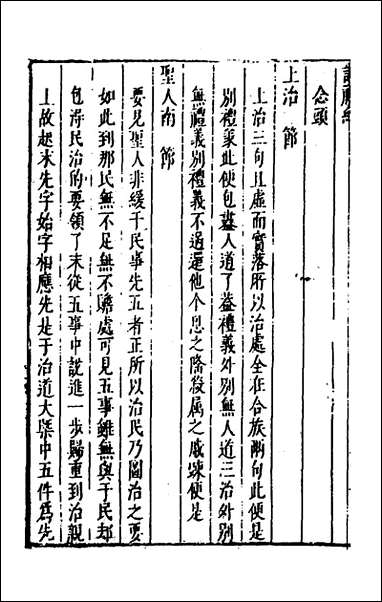 念頭
上治節
上治三句且虛而實落所以治處全在合族兩句此便是
別禮義此便包盡人道了蓋禮義外別無人道三治外別
無禮義別禮義不過還他个恩之隆殺属之戚踈便是
聖人南節
要見聖人非緩于民事先五者正所以治民乃圖治之要
如此到那民無不足無不贍處可見五事雖無與于民却
包得民治的要領了末從五事中説進一步歸重到治親
上故起末先字始字相應先是于治道大槩中五件為先